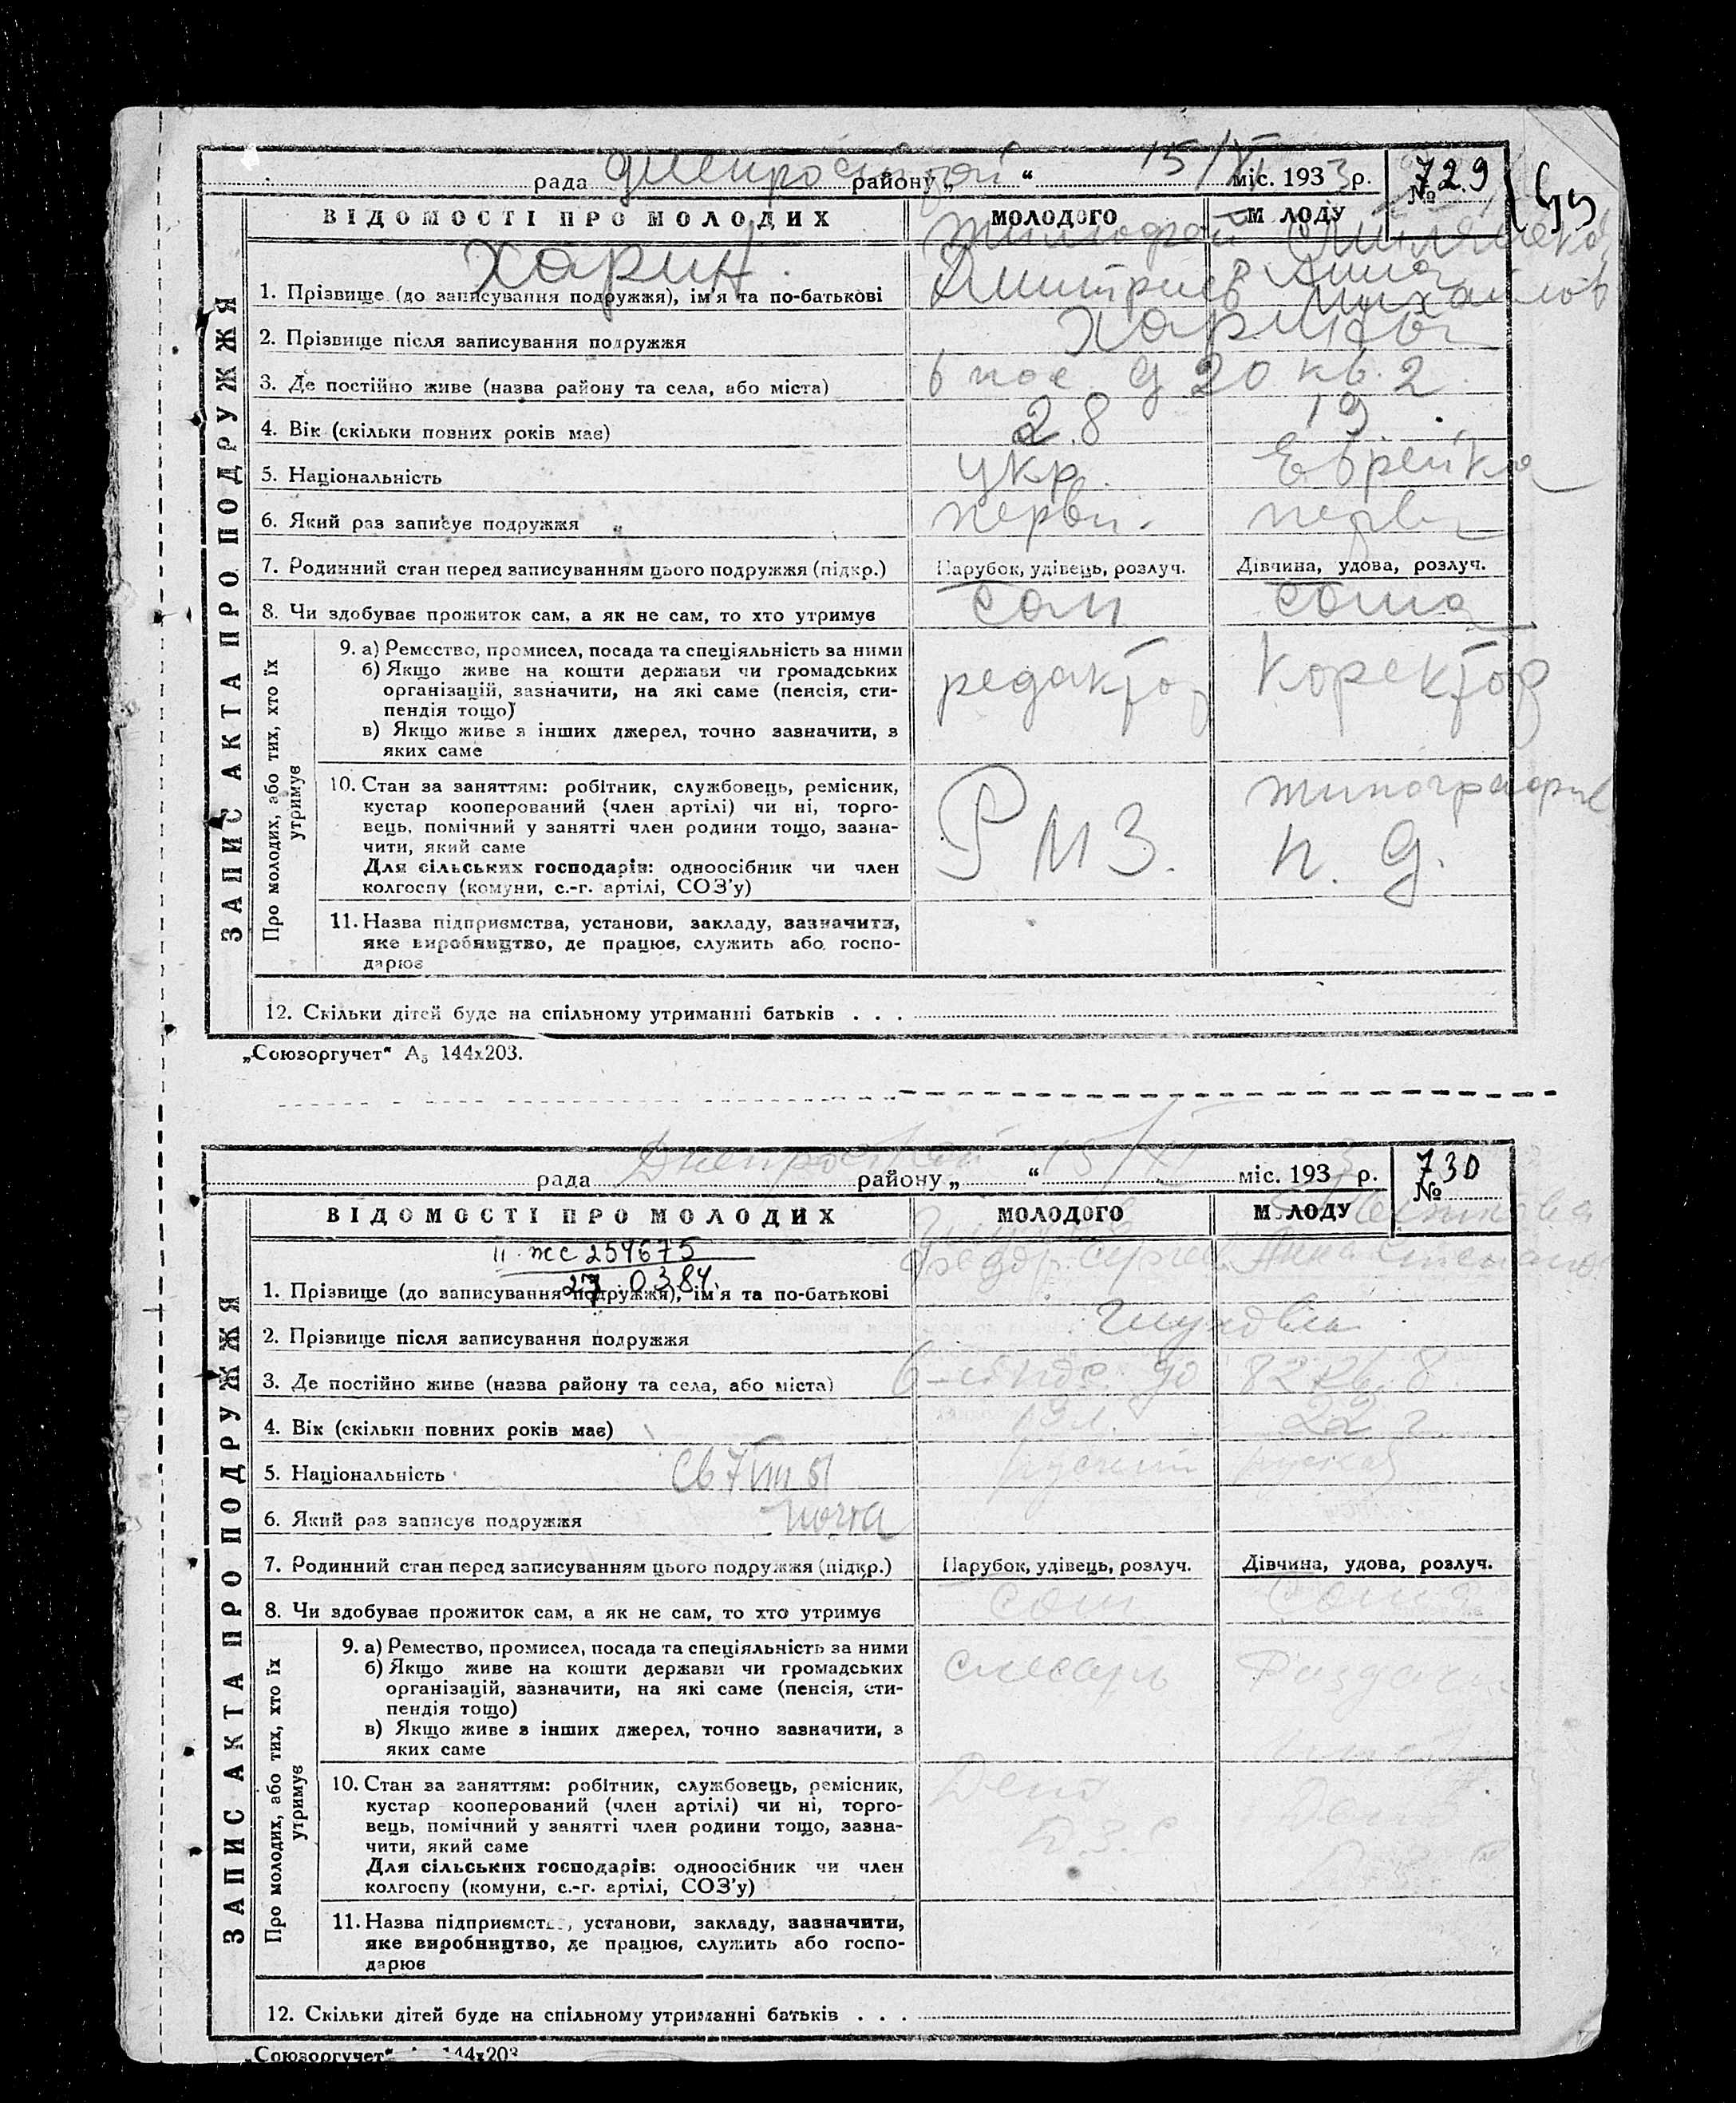 рада Днепрострой району „ “ 15/VI міс. 1933р. № 729
ВІДОМОСТІ ПРО МОЛОДИХ МОЛОДОГО М ЛОДУ
ЗАПИС АКТА ПРО ПОДРУЖЖЯ
Харин
Дмитриев Анна
Михайлов
1. Прізвище (до записування подружжя), ім'я та по-батькові
2. Прізвище після записування подружжя Харины
3. Де постійно живе (назва району та села, або міста) 6 пос. д 20 кв. 2
4. Вік (скільки повних років має) 28 19
5. Національність укр. Еврейка
6. Який раз записує подружжя перви. перв
7. Родинний стан перед записуванням цього подружжя (підкр.) Парубок, удівець, розлуч. Дівчина, удова, розлуч.
8. Чи здобуває прожиток сам, а як не сам, то хто утримує сам сама
Про молодих, або тих, хто їх утримує
9. а) Ремество, промисел, посада та спеціяльність за ними
б) Якщо живе на кошти держави чи громадських
організацій, зазначити, на які саме (пенсія, сти-
пендія тощо)
в) Якщо живе з інших джерел, точно зазначити, з
яких саме
редактор Коректор
10. Стан за заняттям: робітник, службовець, ремісник,
кустар кооперований (член артілі) чи ні, торго-
вець, помічний у занятті член родини тощо, зазна-
чити, який саме
Для сільських господарів: одноосібник чи член
колгоспу (комуни, с.-г. артілі, СОЗ'у)
РМЗ. типография
п. д.
11. Назва підприємства, установи, закладу, зазначити,
яке виробництво, де працює, служить або госпо-
дарює
12. Скільки дітей буде на спільному утриманні батьків . . .
„Союзоргучет“ А₅ 144х203.
рада Днепрострой району „ “ 15/VI міс. 1933 р. № 730
ВІДОМОСТІ ПРО МОЛОДИХ МОЛОДОГО М ЛОДУ
ЗАПИС АКТА ПРО ПОДРУЖЖЯ
II жс 254675
27.03.84.
Федор. Сергеев. Анна Степанов
1. Прізвище (до записування подружжя), ім'я та по-батькові
2. Прізвище після записування подружжя
3. Де постійно живе (назва району та села, або міста) 82 кв. 8
4. Вік (скільки повних років має) 19 л. 22 г.
5. Національність Св 7 VIII 51 русский русская
6. Який раз записує подружжя почта
7. Родинний стан перед записуванням цього подружжя (підкр.) Парубок, удівець, розлуч. Дівчина, удова, розлуч.
8. Чи здобуває прожиток сам, а як не сам, то хто утримує сам сама
Про молодих, або тих, хто їх утримує
9. а) Ремество, промисел, посада та спеціяльність за ними
б) Якщо живе на кошти держави чи громадських
організацій, зазначити, на які саме (пенсія, сти-
пендія тощо)
в) Якщо живе з інших джерел, точно зазначити, з
яких саме
слесарь
10. Стан за заняттям: робітник, службовець, ремісник,
кустар кооперований (член артілі) чи ні, торго-
вець, помічний у занятті член родини тощо, зазна-
чити, який саме
Для сільських господарів: одноосібник чи член
колгоспу (комуни, с.-г. артілі, СОЗ'у)
11. Назва підприємств, установи, закладу, зазначити,
яке виробництво, де працює, служить або госпо-
дарює
12. Скільки дітей буде на спільному утриманні батьків . . .
„Союзоргучет“ 144х203